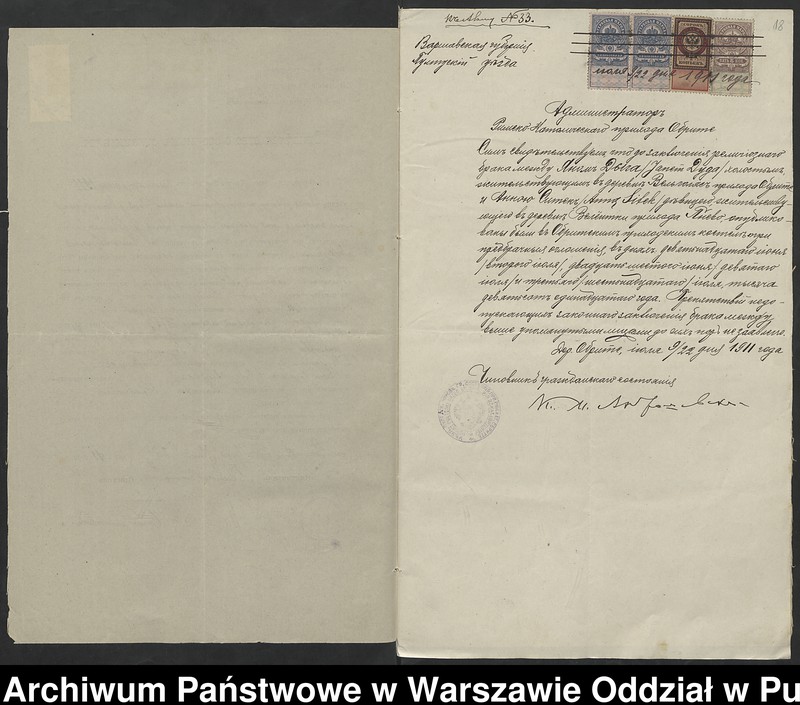 № 33.
18
Варшавская губернія
Пултускій уѣзда
іюля 9/22 дня 1911 года
Администраторъ
Римско-Католическаго прихода Обрите
Симъ свидѣтельствуетъ что до заключенія религіознаго
брака между Яномъ Дуда /Janem Duda/ холостымъ,
жительствующимъ въ деревнѣ прихода Обрите
и Анною Ситекъ /Anną Sitek/ дѣвицею, жительству-
ющею въ деревнѣ прихода опублико-
ваны были въ Обритскимъ приходскимъ костелѣ три
предбрачныя оглашенія, въ дняхъ: девятнадцатаго іюня
/второго іюля/, двадцать шестого іюня /девятаго
іюля/ и третьяго /шестнадцатаго/ іюля, тысяча
девятьсотъ одиннадцатаго года. Препятствій недо-
пускающихъ законнаго заключенія брака между
выше упомянутыми лицами до сихъ поръ не заявлено.
Дер. Обрите, іюля 9/22 дня 1911 года
Чиновникъ гражданскаго состоянія
Archiwum Państwowe w Warszawie Oddział w Pu